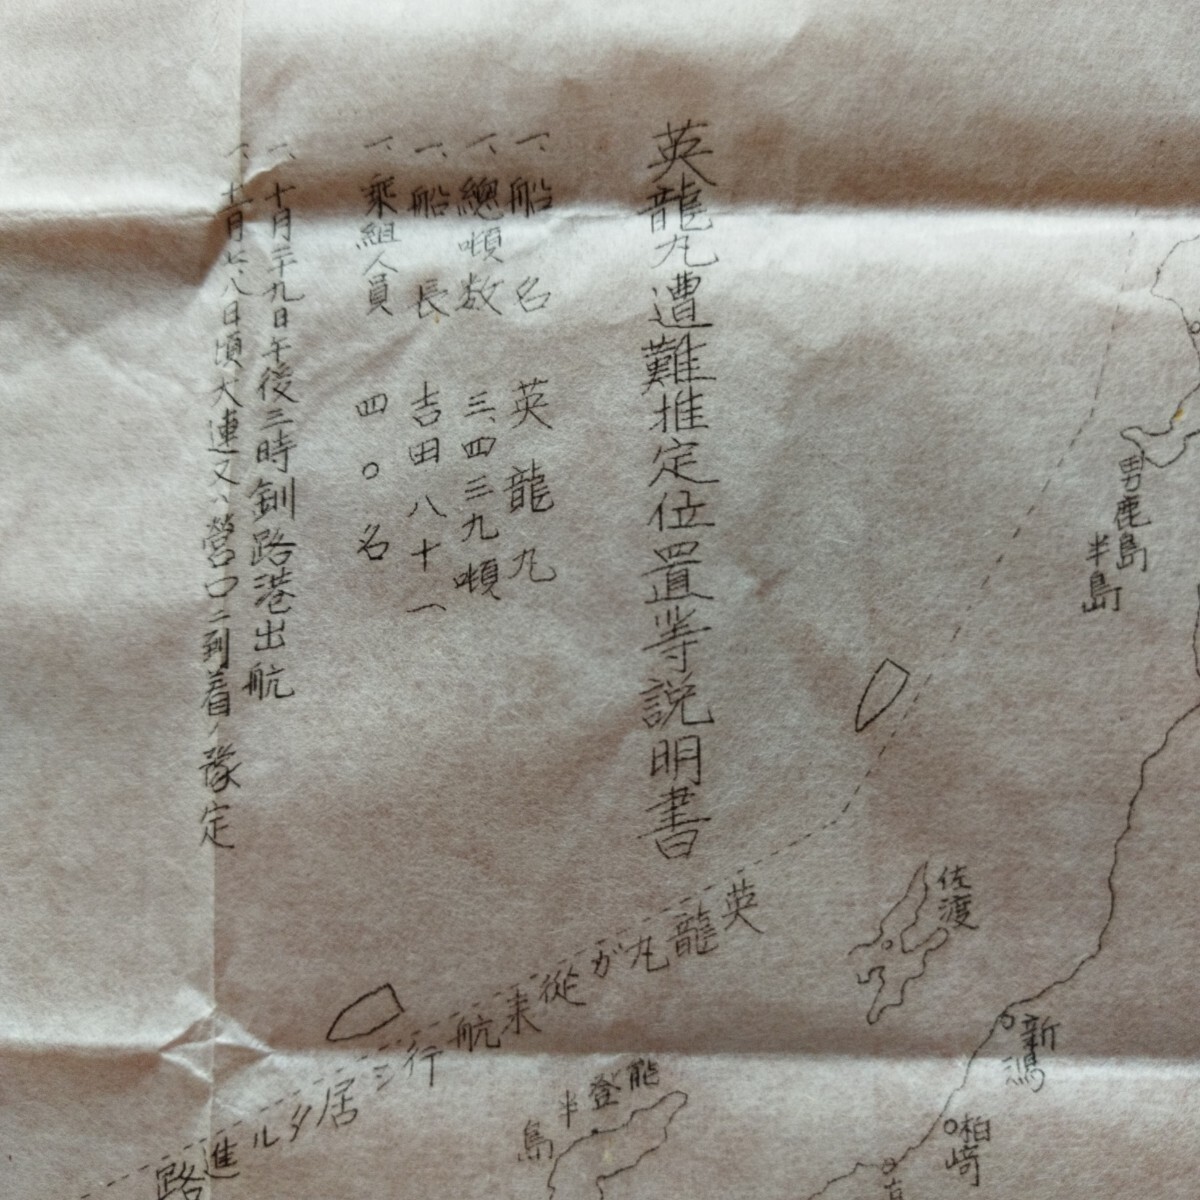 英龍丸遭難推定位置等説明書
一、船名 英龍丸
一、總噸数 三、四三九噸
一、船長 吉田八十一
一、乘組人員 四〇名
一、十月二十九日午後三時釧路港出航
一、十一月七、八日頃大連又ハ營口ニ到着ノ豫定
男鹿島
半島
佐渡
英龍丸が從来航行シ居タル進路
新潟
能登半島
柏崎